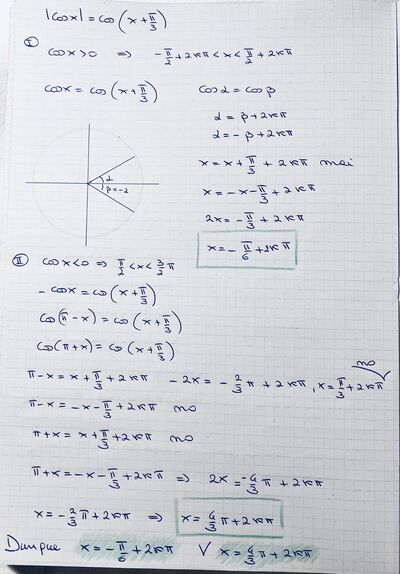 |cosx| = cos(x+π/3)
I
cosx>0 ⇒ -π/2+2kπ<x<π/2+2kπ
cosx = cos(x+π/3) cosα = cosβ
α = β+2kπ
α = -β+2kπ
x = x+π/3+2kπ mai
α
β=-α
x = -x-π/3+2kπ
2x = -π/3+2kπ
x = -π/6+2kπ
II cosx<0 ⇒ π/2<x<3/2π
-cosx = cos(x+π/3)
cos(π-x) = cos(x+π/3)
cos(π+x) = cos(x+π/3)
no
π-x = x+π/3+2kπ -2x = -2/3π+2kπ, x=π/3+2kπ
π-x = -x-π/3+2kπ no
π+x = x+π/3+2kπ no
π+x = -x-π/3+2kπ ⇒ 2x = -4/3π+2kπ
x = -2/3π+2kπ ⇒ x = 4/3π+2kπ
Dunque x = -π/6+2kπ V x = 4/3π+2kπ